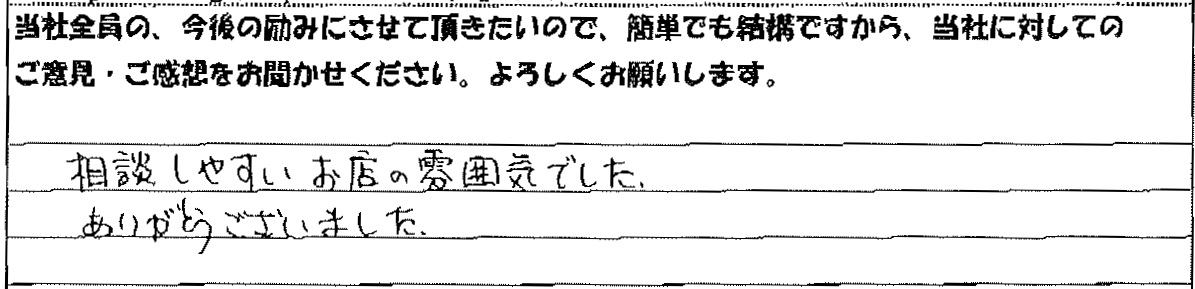 当社全員の、今後の励みにさせて頂きたいので、簡単でも結構ですから、当社に対しての
ご意見・ご感想をお聞かせください。よろしくお願いします。
相談しやすいお店の雰囲気でした。
ありがとうございました。